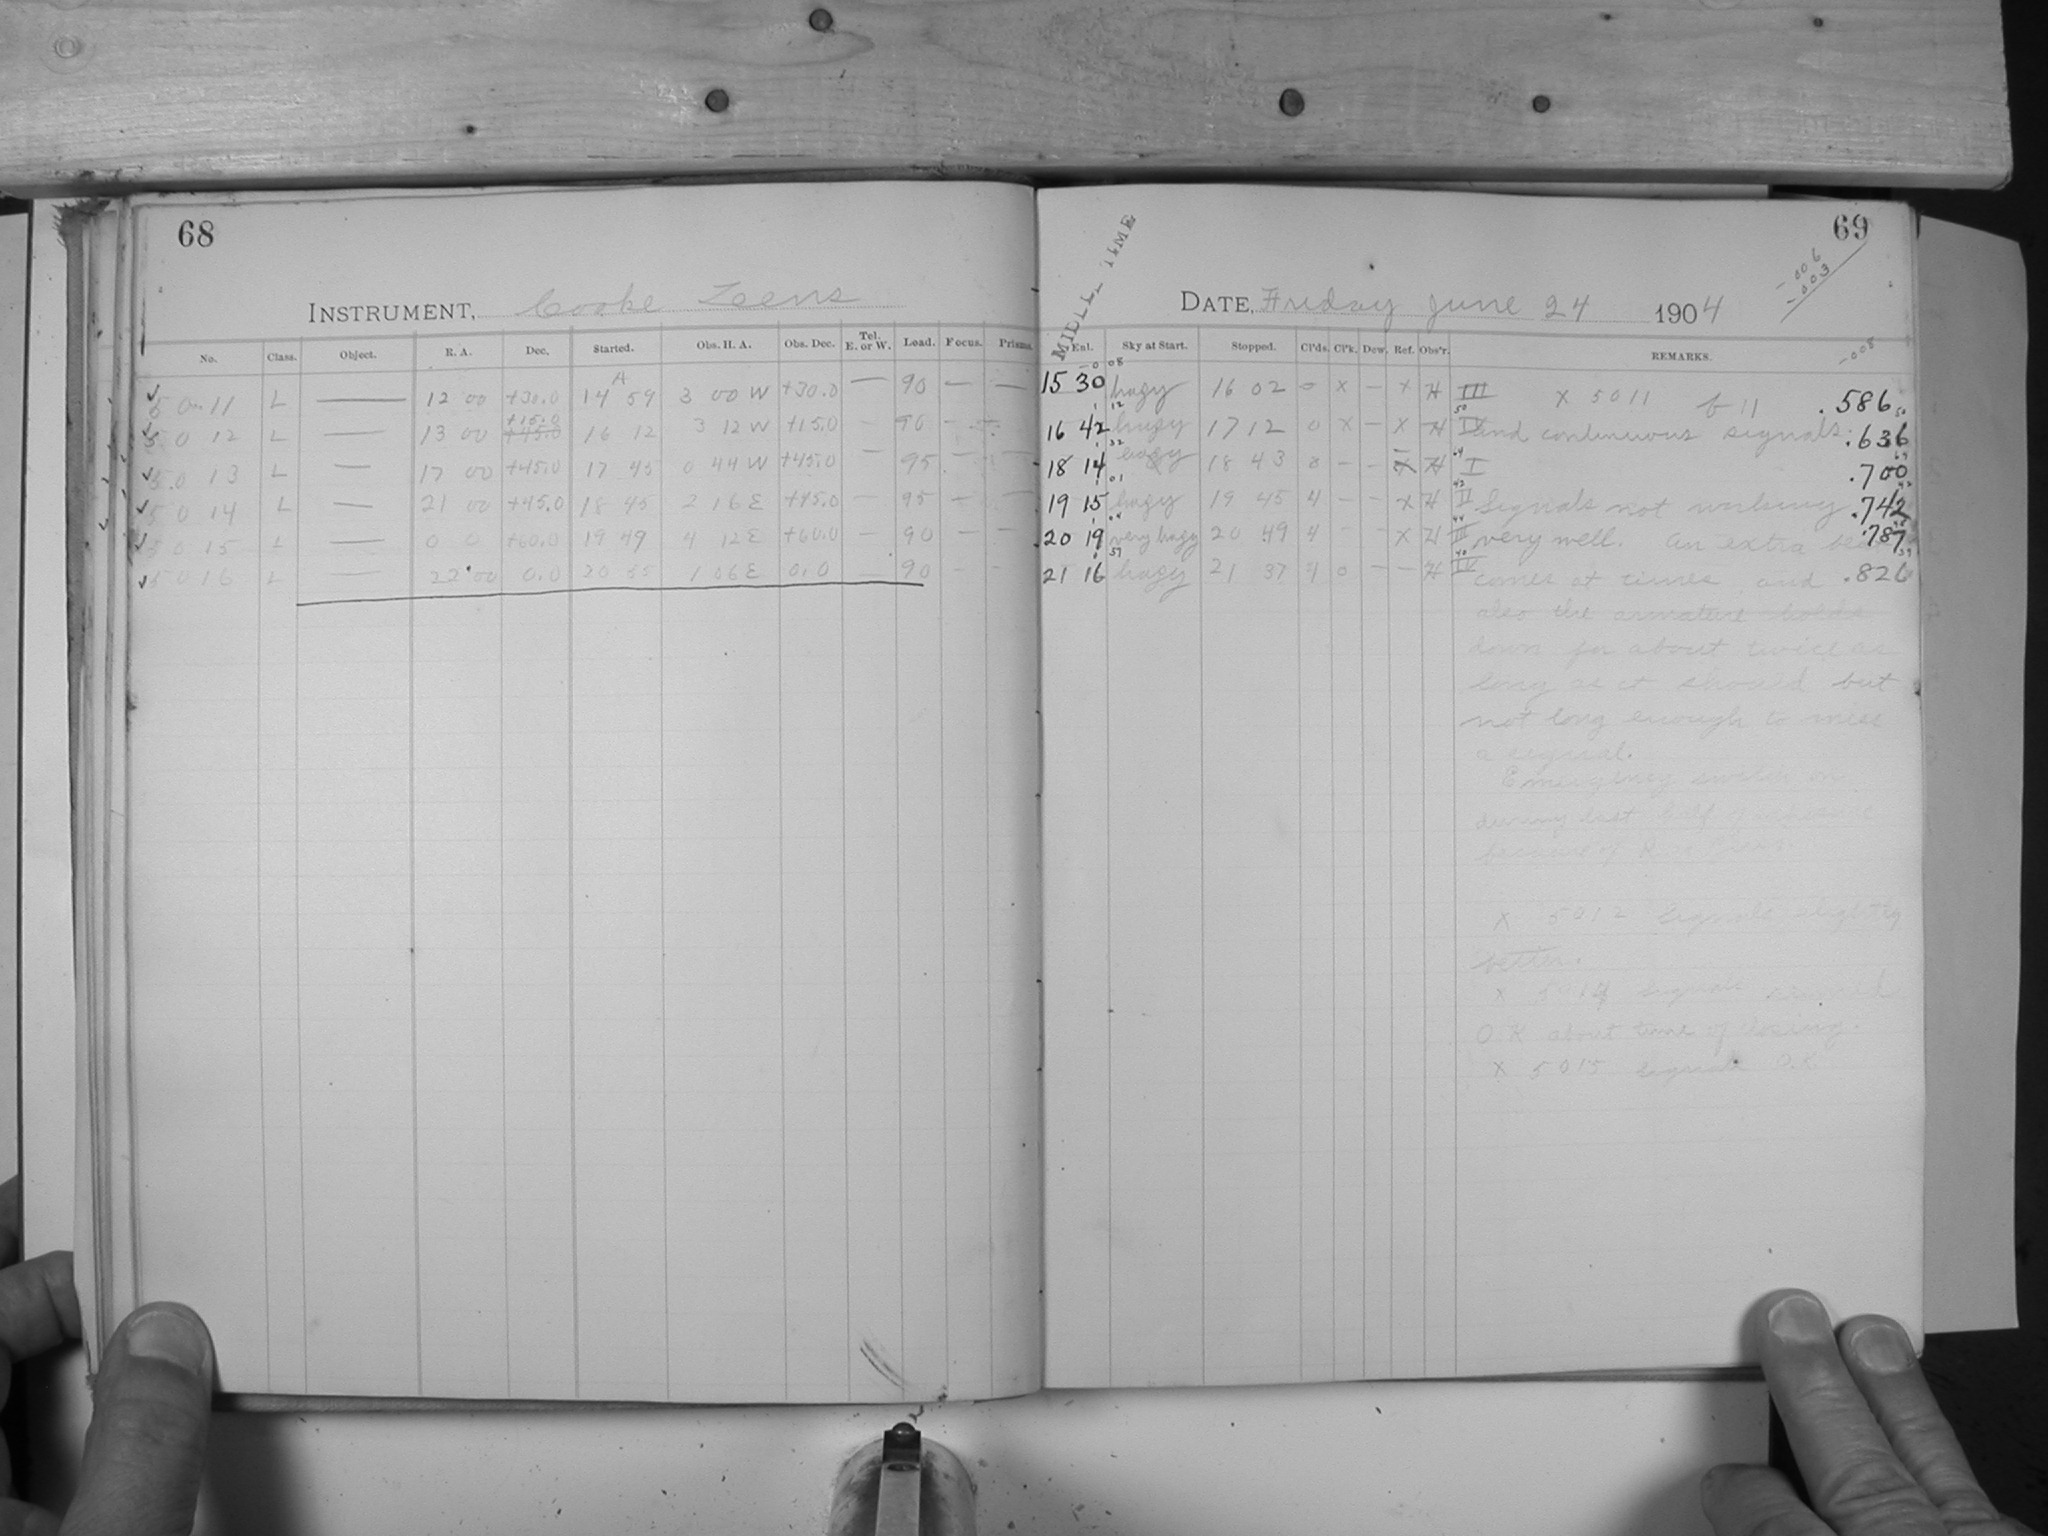 68
INSTRUMENT, Cooke Leens
No. Class. Object. R. A. Dec. Started. Obs. H. A. Obs. Dec. Tel. E. or W. Load. Focus. Prisms.
5011 L — 12 00 +30.0 14 59 3 00 W +30.0 — 90 — —
5012 L — 13 00 +15.0 16 12 3 12 W +15.0 — 90 — —
5013 L — 17 00 +45.0 17 45 0 44 W +45.0 — 95 — —
5014 L — 21 00 +45.0 18 45 2 16 E +45.0 — 95 — —
5015 L — 0 0 +60.0 19 49 4 12 E +60.0 — 90 — —
5016 L — 22 00 0.0 20 55 1 06 E 0.0 — 90 — —
69
MIDDLE TIME
-.006
-.003
DATE, Friday June 24 1904
Enl. Sky at Start. Stopped. Cl'ds. Cl'k. Dew. Ref. Obs'r. REMARKS.
-.008
15 30 hazy 16 02 0 x — x H III x 5011 .586
16 42 hazy 17 12 0 x — x H IV and continuous signals. .636
18 14 hazy 18 43 0 — — x H I .700
19 15 hazy 19 45 4 — — x H II Signals not working .742
20 19 very hazy 20 49 4 — — x H III very well. An extra beat .787
21 16 hazy 21 37 4 0 — — H IV comes at times and .826
also the armature holds
down for about twice as
long as it should but
not long enough to miss
a signal.
Emergency switch on
during last half of exposure
because of
x 5012 Signals slightly
better.
x 5014 Signals
O.K about time of closing.
x 5015 Signals O.K